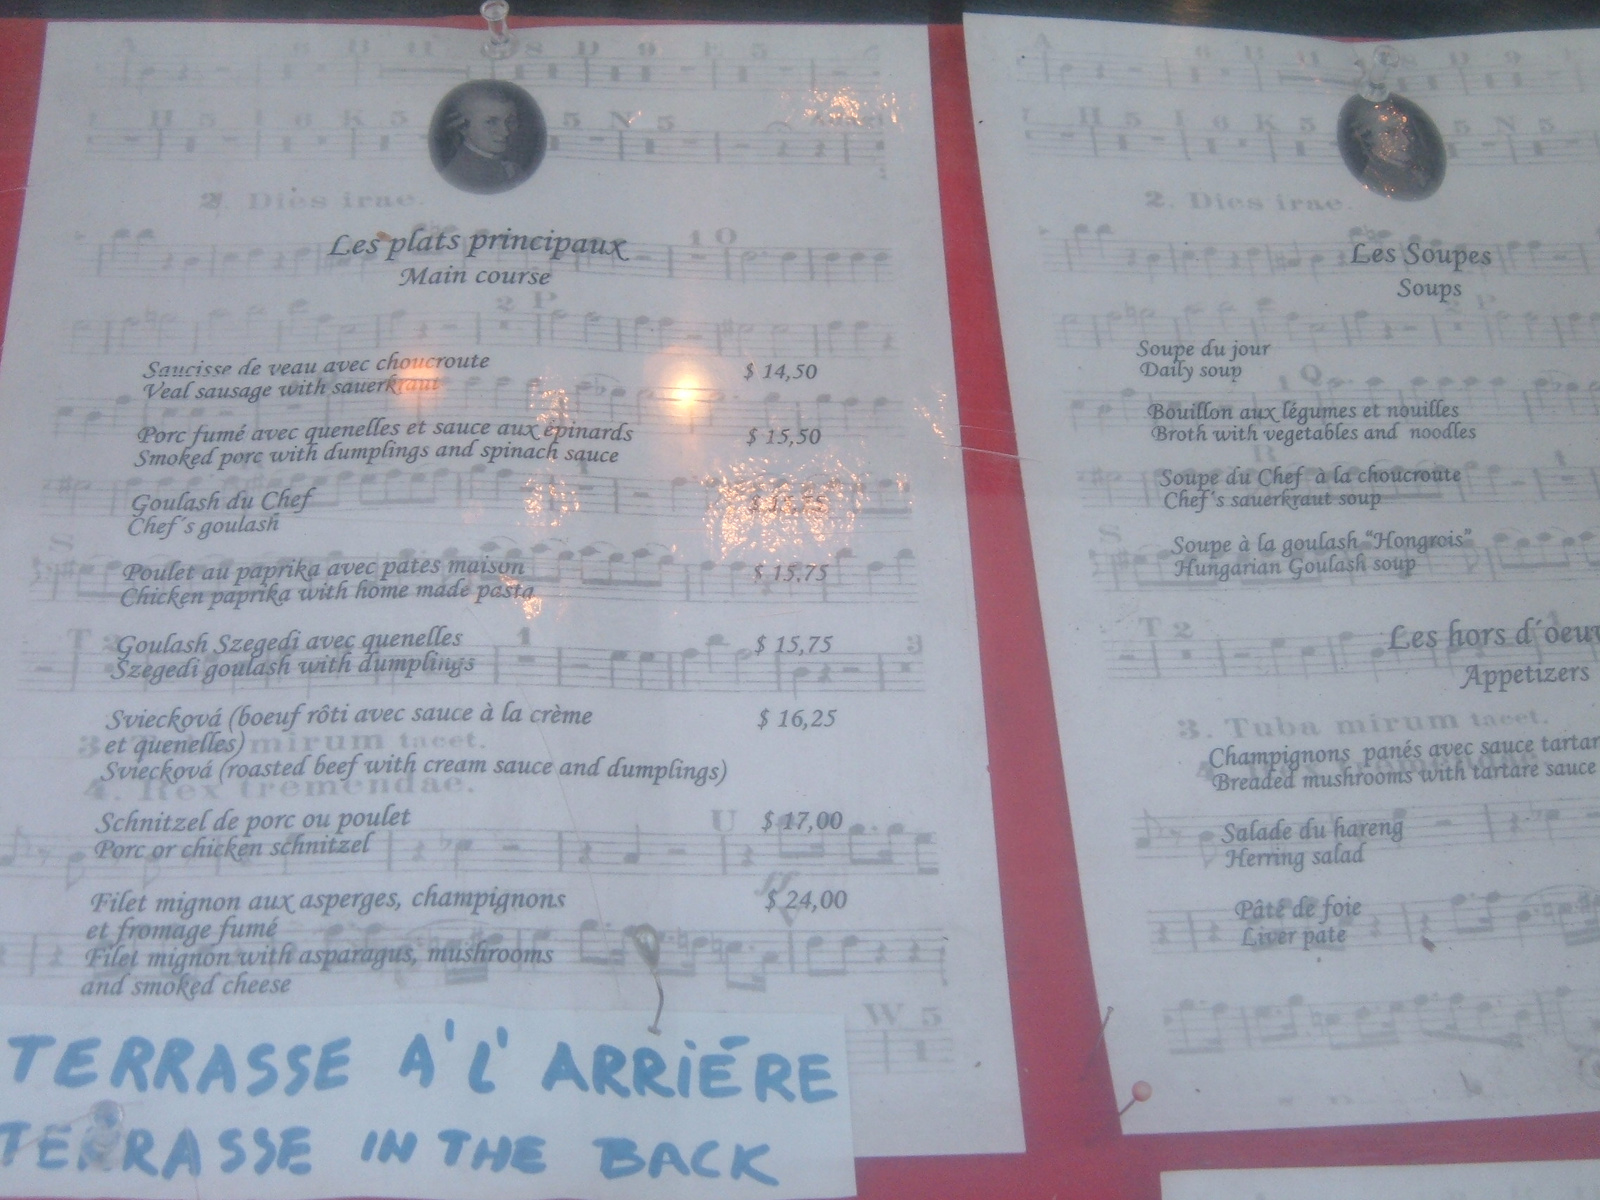 2. Dies irae.
Les plats principaux
Main course
Saucisse de veau avec choucroute
Veal sausage with sauerkraut
$ 14,50
Porc fumé avec quenelles et sauce aux épinards
Smoked porc with dumplings and spinach sauce
$ 15,50
Goulash du Chef
Chef´s goulash
Poulet au paprika avec pates maison
Chicken paprika with home made pasta
$ 15,75
Goulash Szegedi avec quenelles
Szegedi goulash with dumplings
$ 15,75
Sviecková (boeuf rôti avec sauce à la crème
et quenelles)
Sviecková (roasted beef with cream sauce and dumplings)
$ 16,25
mirum tacet.
4. Rex tremendae.
Schnitzel de porc ou poulet
Porc or chicken schnitzel
$ 17,00
Filet mignon aux asperges, champignons
et fromage fumé
Filet mignon with asparagus, mushrooms
and smoked cheese
$ 24,00
W 5
TERRASSE A' L' ARRIÉRE
TERRASSE IN THE BACK
2. Dies irae.
Les Soupes
Soups
Soupe du jour
Daily soup
Bouillon aux légumes et nouilles
Broth with vegetables and noodles
Soupe du Chef à la choucroute
Chef´s sauerkraut soup
Soupe à la goulash “Hongrois”
Hungarian Goulash soup
Les hors d´oeuv
Appetizers
3. Tuba mirum tacet.
Champignons panés avec sauce tartar
Breaded mushrooms with tartare sauce
Salade du hareng
Herring salad
Pâté de foie
Liver pate